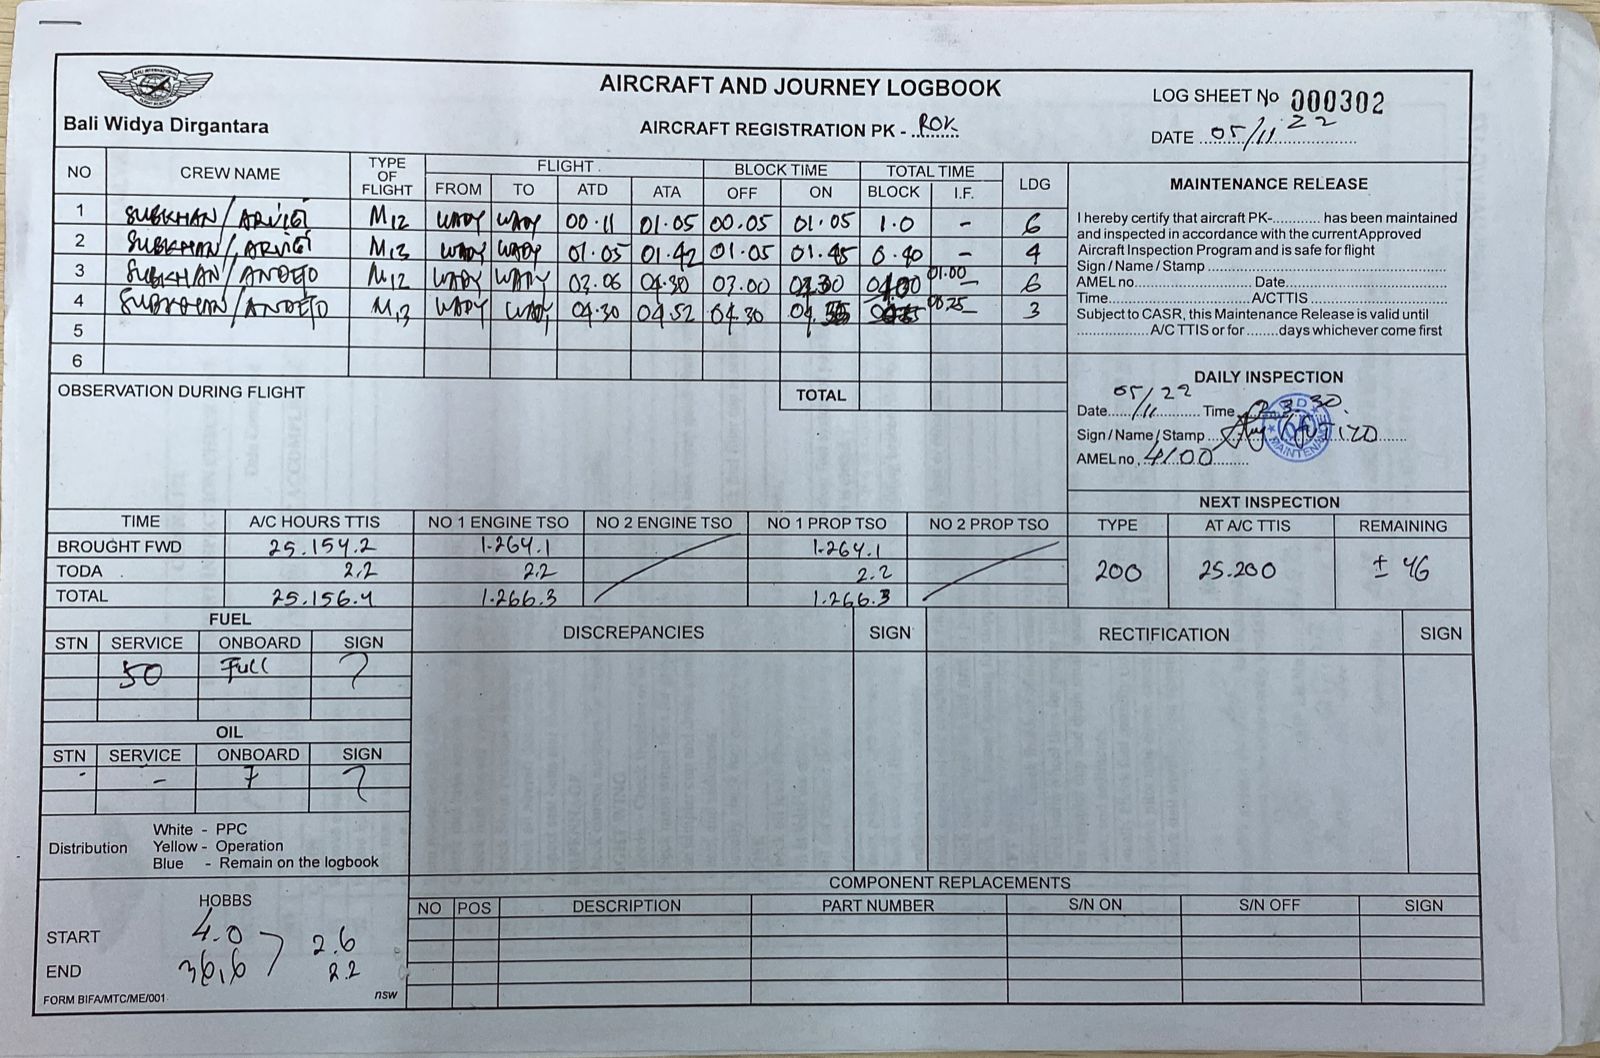 AIRCRAFT AND JOURNEY LOGBOOK
LOG SHEET No 000302
Bali Widya Dirgantara
AIRCRAFT REGISTRATION PK - ROK
DATE 05/11 22
NO CREW NAME TYPE OF FLIGHT FLIGHT BLOCK TIME TOTAL TIME LDG
FROM TO ATD ATA OFF ON BLOCK I.F.
1 SUBKHAN / ARVIGI M12 WADY WADY 00.11 01.05 00.05 01.05 1.0 - 6
2 SUBKHAN / ARVIGI M13 WADY WADY 01.05 01.42 01.05 01.45 0.40 - 4
3 SUBKHAN / M12 WADY WADY 03.06 04.30 03.00 01.00 - 6
4 SUBKHAN / M13 WADY WADY 04.30 04.52 04.30 00.25 - 3
5
6
MAINTENANCE RELEASE
I hereby certify that aircraft PK-............ has been maintained
and inspected in accordance with the current Approved
Aircraft Inspection Program and is safe for flight
Sign / Name / Stamp
AMEL no. Date
Time A/C TTIS
Subject to CASR, this Maintenance Release is valid until
A/C TTIS or for ........ days whichever come first
OBSERVATION DURING FLIGHT
TOTAL
DAILY INSPECTION
Date 05/11 22 Time 23.30
Sign / Name / Stamp
AMEL no. 4100
TIME A/C HOURS TTIS NO 1 ENGINE TSO NO 2 ENGINE TSO NO 1 PROP TSO NO 2 PROP TSO
BROUGHT FWD 25.154.2 1.264.1 1.264.1
TODA 2.2 2.2 2.2
TOTAL 25.156.4 1.266.3 1.266.3
NEXT INSPECTION
TYPE AT A/C TTIS REMAINING
200 25.200 ± 46
FUEL
STN SERVICE ONBOARD SIGN
50 Full
OIL
STN SERVICE ONBOARD SIGN
- - 7
DISCREPANCIES SIGN RECTIFICATION SIGN
Distribution
White - PPC
Yellow - Operation
Blue - Remain on the logbook
HOBBS
START 4.0 2.6
END 36,6 2.2
FORM BIFA/MTC/ME/001
nsw
COMPONENT REPLACEMENTS
NO POS DESCRIPTION PART NUMBER S/N ON S/N OFF SIGN